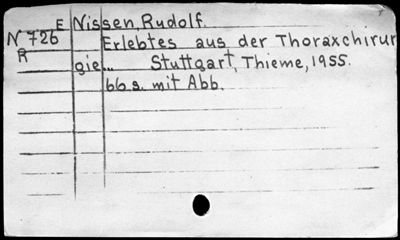 E Nissen, Rudolf.
N 726 Erlebtes aus der Thoraxchirur
R
gie... Stuttgart, Thieme, 1955.
66 s. mit Abb.